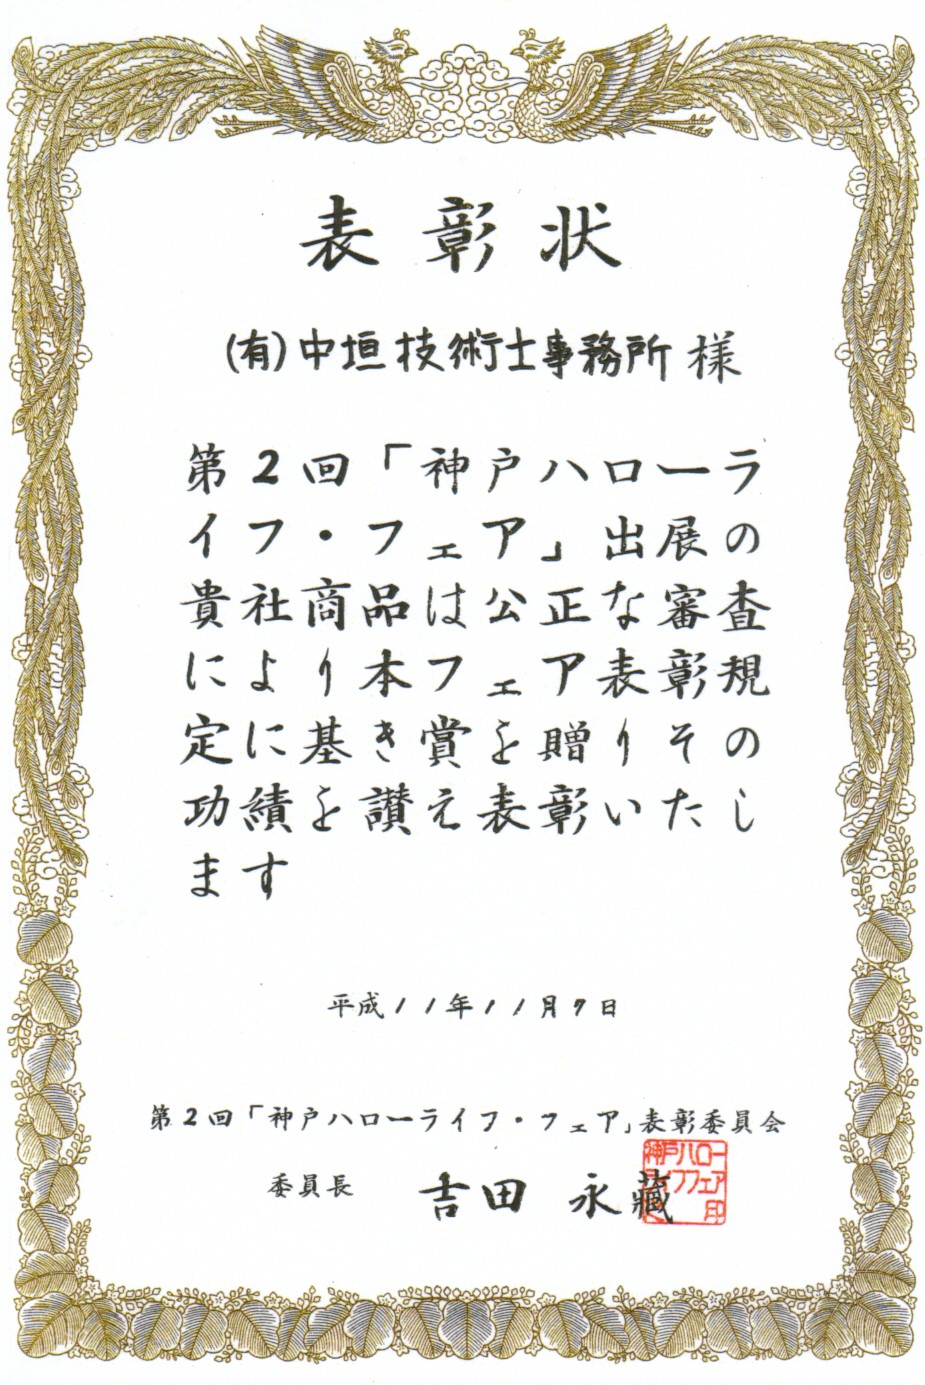 表彰状
(有)中垣技術士事務所様
第2回「神戸ハローラ
イフ・フェア」出展の
貴社商品は公正な審査
により本フェア表彰規
定に基き賞を贈りその
功績を讃え表彰いたし
ます
平成11年11月7日
第2回「神戸ハローライフ・フェア」表彰委員会
委員長 吉田 永藏
神戸ハロー
ライフフェア
印